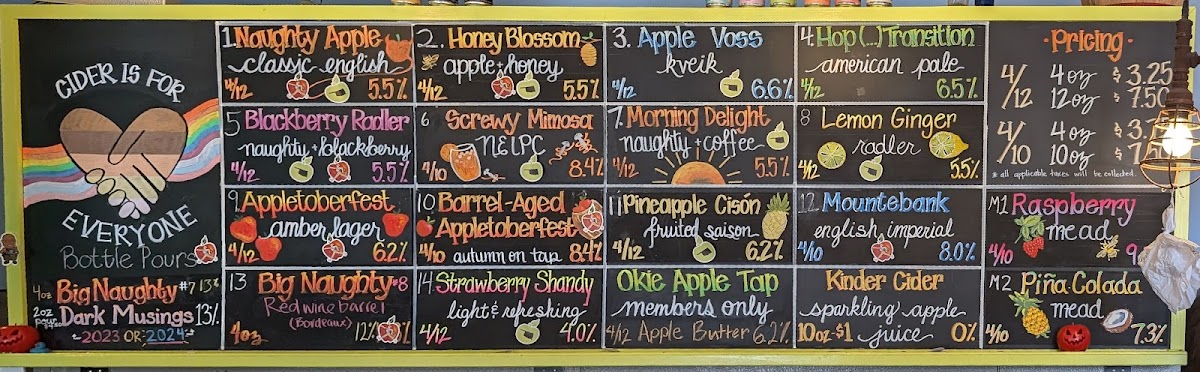 CIDER IS FOR
EVERYONE
Bottle Pours
4oz Big Naughty #7 13%
2oz pour Dark Musings 13%
~2023 OR 2024~
1. Naughty Apple
classic english
4/12 5.5%
2. Honey Blossom
apple + honey
4/12 5.5%
3. Apple Voss
kveik
4/12 6.6%
4. Hop (...) Transition
american pale
4/12 6.5%
5 Blackberry Radler
naughty + blackberry
4/12 5.5%
6 Screwy Mimosa
NELPC
4/10 8.4%
7. Morning Delight
naughty + coffee
4/12 5.5%
8 Lemon Ginger
radler
4/12 5.5%
9 Appletoberfest
amber lager
4/12 6.2%
10 Barrel-Aged
Appletoberfest
4/10 autumn on tap 8.4%
11 Pineapple Cisón
fruited saison
4/12 6.2%
12 Mountebank
english imperial
4/10 8.0%
13 Big Naughty #8
Red wine barrel
(Bordeaux)
4oz 12%
14 Strawberry Shandy
light & refreshing
4/12 4.0%
Okie Apple Tap
members only
4/12 Apple Butter 6.2%
Kinder Cider
sparkling apple
10oz $1 juice 0%
·Pricing·
4/12 4oz $3.25
12oz $7.50
4/10 4oz
10oz
* all applicable taxes will be collected.
M1 Raspberry
mead
4/10
M2 Piña Colada
mead
4/10 7.3%